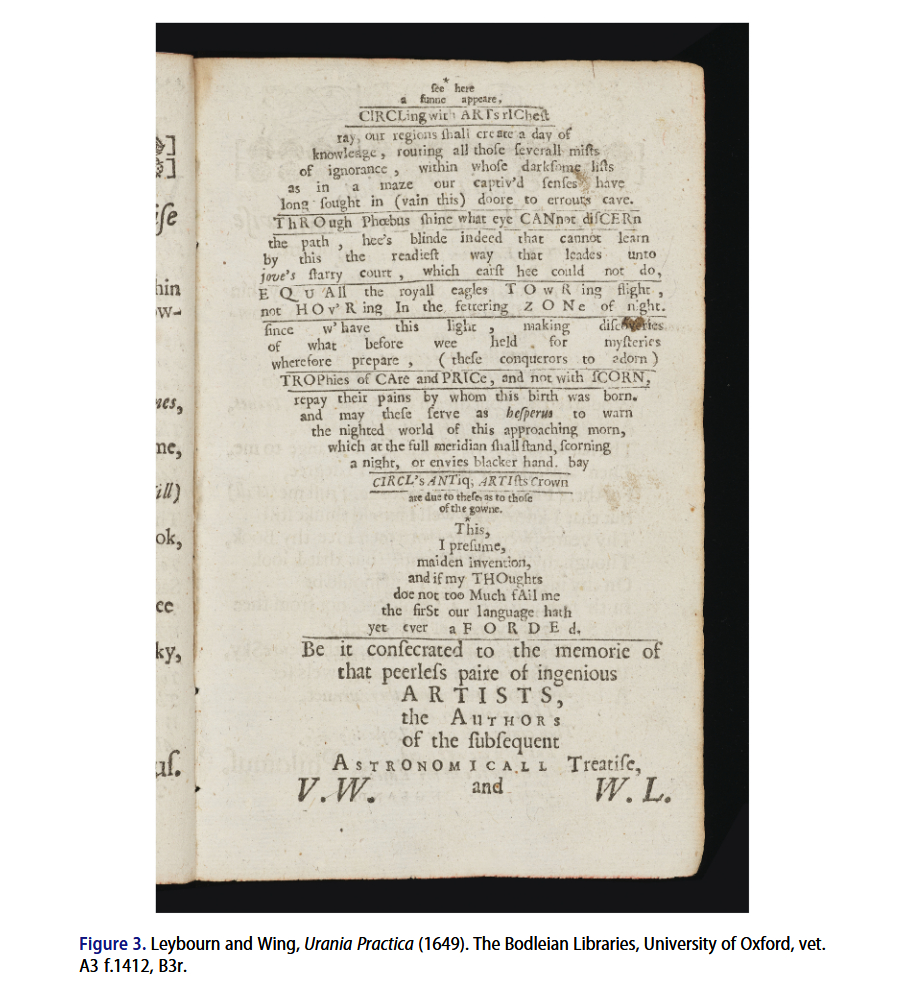 ſee * here
a ſunne appeare,
CIRCLing with ARTs rICheſt
ray, our regions ſhall create a day of
knowledge, routing all thoſe ſeverall miſts
of ignorance, within whoſe darkſome liſts
as in a maze our captiv'd ſenſes have
long ſought in (vain this) doore to errours cave.
ThROugh Phœbus ſhine what eye CANnot diſCERn
the path, hee's blinde indeed that cannot learn
by this the readieſt way that leades unto
jove's ſtarry court, which earſt hee could not do,
EQUAll the royall eagles TOwRing flight,
not HOv'Ring In the fettering ZONe of night.
ſince w'have this light, making diſcoveries
of what before wee held for myſteries
wherefore prepare, (theſe conquerors to adorn)
TROPhies of CAre and PRICe, and not with ſCORN,
repay their pains by whom this birth was born.
and may theſe ſerve as heſperus to warn
the nighted world of this approaching morn,
which at the full meridian ſhall ſtand, ſcorning
a night, or envies blacker hand. bay
CIRCL's ANTiq; ARTIſts Crown
are due to theſe, as to thoſe
of the gowne.
*
This,
I preſume,
maiden invention,
and if my THOughts
doe not too Much fAil me
the firSt our language hath
yet ever aFORDEd,
Be it conſecrated to the memorie of
that peerleſs paire of ingenious
ARTISTS,
the AUTHORS
of the ſubſequent
ASTRONOMICALL Treatiſe,
V.W. and W.L.
Figure 3. Leybourn and Wing, Urania Practica (1649). The Bodleian Libraries, University of Oxford, vet.
A3 f.1412, B3r.